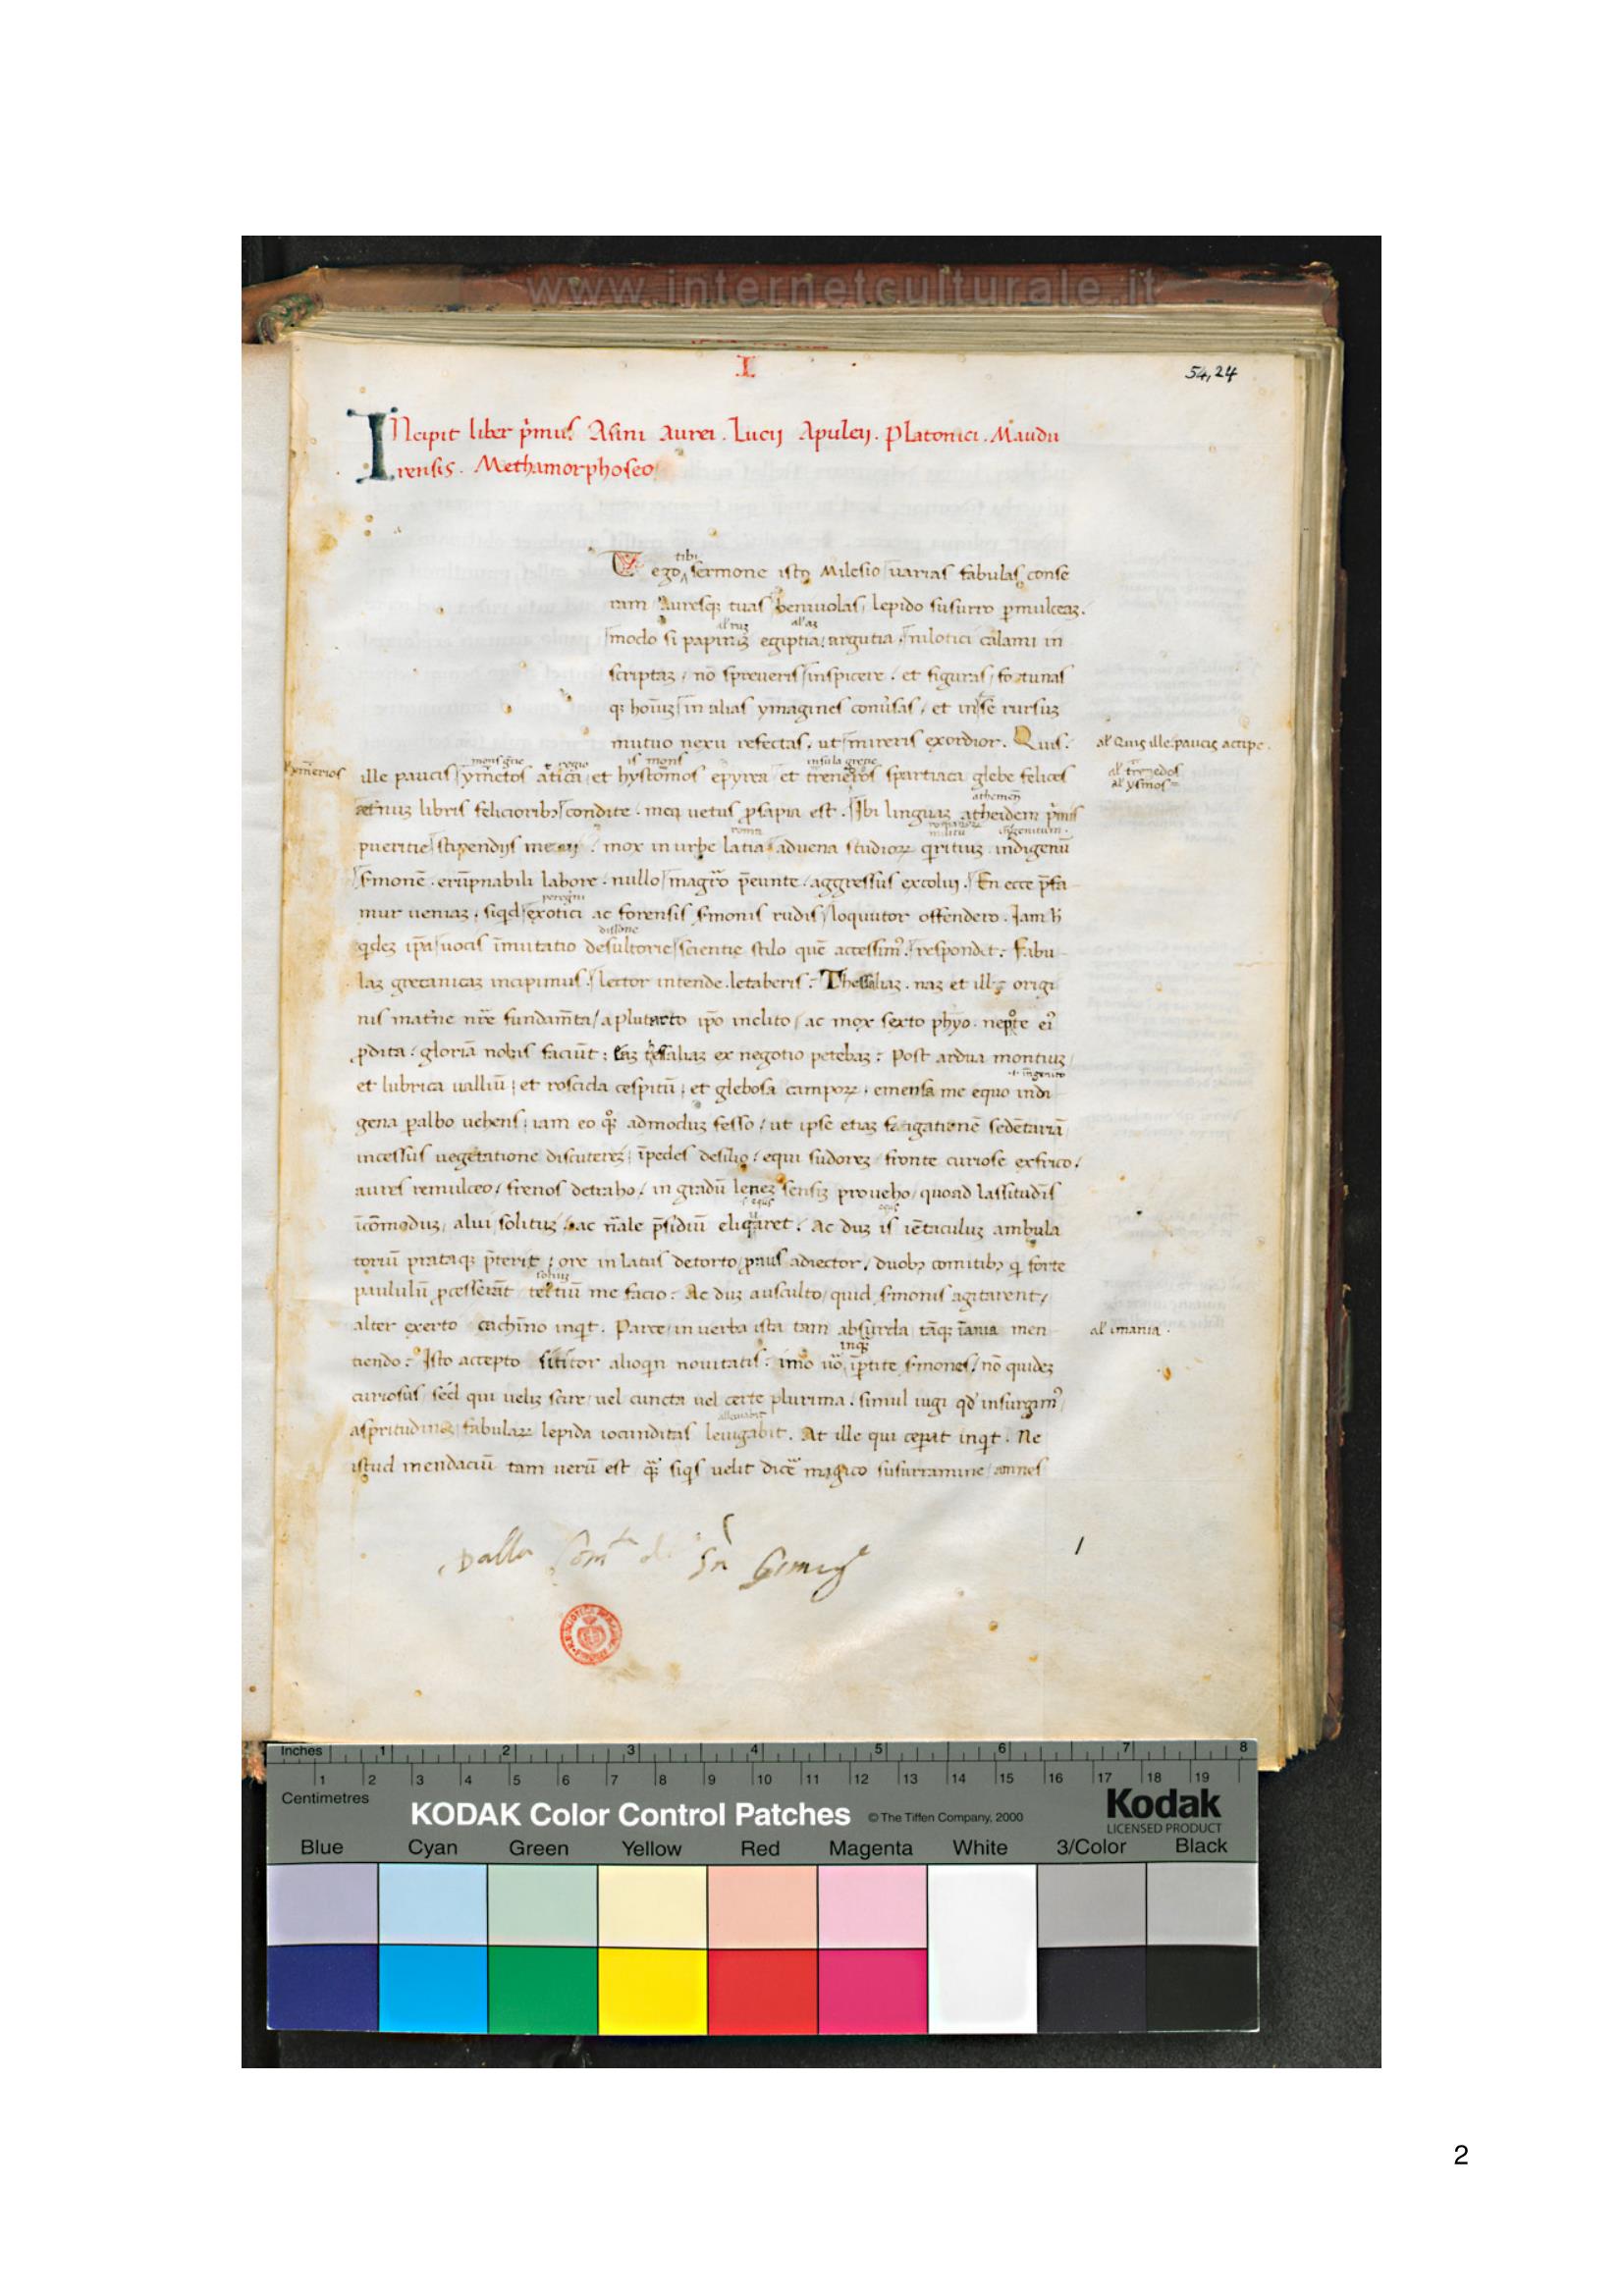 www.internetculturale.it
I
54,24
INcipit liber p̄mus Asini Aurei . Lucij Apuleij . Platonici . Maudu
rensis . Methamorphoseo
tibi
ego sermone isto Milesio uarias fabulas conse
ram Auresq; tuas beniuolas lepido susurro ꝑmulceaꝫ .
modo si papiruꝫ egiptia argutia nilotici calami in
scriptaꝫ / nō spreueris inspicere . et figuras fortunas
q; hoīuꝫ in alias ymagines conūsas / et in se rursuꝫ
mutuo nexu refectas . ut mireris exordior . Quis .
al' Quis ille . paucis accipe .
insula grecie
ille paucis ymetos atica et hystomos epyrea et treneros spartiaca glebe felices
al' ysmos
libris felicioribꝫ condite . meꝗ uetus ꝓsapia est . Ibi linguaꝫ atheidem
roma
pueritie stipendijs / mox in urbe latia aduena studioꝝ q̄ritiuꝫ indigenū
sermonē . erūpnabili labore . nullo magr̄o p̄eunte . aggressus excolui . En ecce p̄fa
mur ueniaꝫ . siqd exotici ac forensis sermonis rudis loquutor offendero . Iam h̄
qdeꝫ ip̄a uocis īmutatio desultorie scientie stilo quē accessim' respondet . Fabu
laꝫ grecanicaꝫ incipimus . lector intende . letaberis . Thessaliaꝫ . naꝫ et ill origi
nis mat'ne nr̄e fundam̄ta / a plutarco ip̄o inclito / ac mox sexto phyo . nepote ei'
ꝓdita . gloriā nobis faciūt : eaꝫ tessaliaꝫ ex negotio petebaꝫ : Post ardua montiuꝫ
et lubrica ualliū ; et roscida cespitū ; et glebosa campoꝝ . emensa me equo indi
gena ꝑalbo uehens ; iam eo q̊q; admoduꝫ fesso / ut ipse etiaꝫ fatigationē sedētariā
incessus uegetatione discutereꝫ ; īpedes desilio / equi sudoreꝫ fronte curiose exfrico /
aures remulceo / frenos detraho / in gradū leneꝫ sensiꝫ proueho / quoad lassitudīs
īcōmoduꝫ / alui solituꝫ ac nāle p̄sidiū eliquaret . Ac duꝫ is iētaculuꝫ ambula
toriū prataq; p̄terit ; ore in latus detorto ꝓnus adiector / duobꝫ comitibꝫ q forte
paululū ꝓcesserāt tertiū me facio : Ac duꝫ ausculto / quid sermonis agitarent /
alter exerto cachīno inqt . Parce in uerba ista tam absurda tāq; īania men
al' imania .
tiendo : Isto accepto sititor alioqn nouitatis : imō uō īptite sermones / nō quideꝫ
curiosus / sed qui ueliꝫ scire / uel cuncta uel certe plurima . simul iugi qd' insurgim'
aspritudineꝫ fabulaꝝ lepida iocunditas leuigabit . At ille qui ceperat inqt . Ne
istud mendaciū tam uerū est siqs uelit dicē magico susurramine / amnes
1
Inches 1 2 3 4 5 6 7 8
1 2 3 4 5 6 7 8 9 10 11 12 13 14 15 16 17 18 19
Centimetres
KODAK Color Control Patches © The Tiffen Company, 2000
Kodak
LICENSED PRODUCT
Blue Cyan Green Yellow Red Magenta White 3/Color Black
2